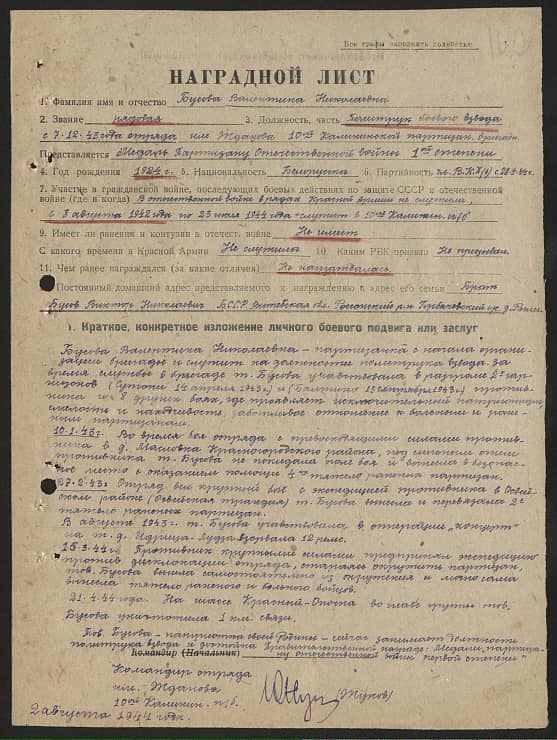 Все графы заполнять полностью
НАГРАДНОЙ ЛИСТ
1. Фамилия имя и отчество Бусова Валентина Николаевна
2. Звание рядовая 3. Должность, часть Политрук боевого взвода
с 7.12.43 года отряда им. Жданова 10ой Калининской партизан. бригады
Представляется Медаль Партизану Отечественной войны 1ой степени
4. Год рождения 1924 г. 5. Национальность Белоруска 6. Партийность чл. ВКП(б) с
7. Участие в гражданской войне, последующих боевых действиях по защите СССР и отечественной
войне (где и когда) В отечественной войне в рядах Красной Армии не служила,
с 8 августа 1942 года по 23 июля 1944 года служит в 10ой Калинин. п/б
9. Имеет ли ранения и контузии в отечест. войне Не имеет
С какого времени в Красной Армии Не служила 10. Каким РВК призван Не призван.
11. Чем ранее награждался (за какие отличия) Не награждалась.
Постоянный домашний адрес представляемого к награждению и адрес его семьи Брат
Бусов Виктор Николаевич БССР Витебская обл. Россонский р-н Горбачевский с/с д.
1. Краткое, конкретное изложение личного боевого подвига или заслуг
Бусова Валентина Николаевна - партизанка с начала органи-
зации бригады и служит на должности политрука взвода. За
время службы в бригаде т. Бусова участвовала в разгроме 2х гар-
низонов ( 14 апреля 1943 г.) и ( 15 сентября 1943 г.) против-
ника и в 8 других боях, где проявляет исключительный патриотизм,
смелость и находчивость, заботливое отношение к больным и ране-
ным партизанам.
10.1.43 г. Во время боя отряда с превосходящими силами против-
ника в д. Масловка Красногородского района, под сильным огнем
противника т. Бусова не покидала поле боя и вынесла в безопас-
ное место с оказанием помощи 4ех тяжело раненых партизан.
27.2.43 г. Отряд вел крупный бой с экспедицией противника в Освей-
ском районе (Освейская трагедия) т. Бусова вынесла и перевязала 2х
тяжело раненых партизан.
В августе 1943 г. т. Бусова участвовала в операции „концерт"
на ж. д. Идрица-Лудза взорвала 12 рельс.
15.3.44 г. Противник крупными силами предпринял экспедицию
против дислокации отряда, стараясь окружить партизан,
тов. Бусова вышла самостоятельно из окружения и мало сама
вынесла тяжело раненого и больного бойцов.
21.4.44 года. На шоссе Красный-Опочка во главе группы тов.
Бусова уничтожила 1 км. связи.
Тов. Бусова - патриотка своей Родины - сейчас занимает должность
политрука взвода и достойна Правительственной награде: Медали „партиза-
Командир (Начальник) ну отечественной войны первой степени"
Командир отряда
им. Жданова
10ой Калинин. п/б. (Жуков)
2 августа 1944 года.